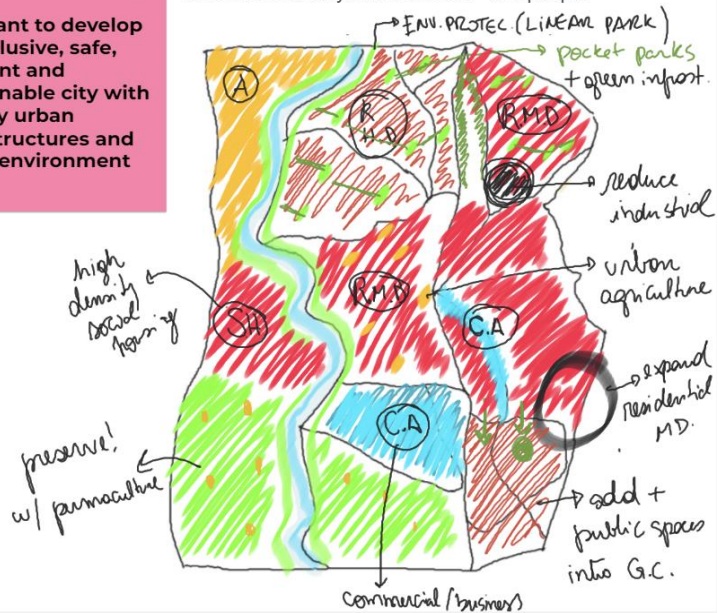 ant to develop
lusive, safe,
nt and
nable city with
y urban
structures and
environment
ENV. PROTEC. (LINEAR PARK)
pocket parks
+ green infrast.
A
R
H.D
R.MD
reduce
industrial
high
density
social
housing
urban
agriculture
SH
R.M.D
C.A
expand
residential
MD.
C.A
preserve!
w/ permaculture
add +
public spaces
into G.C.
commercial/business